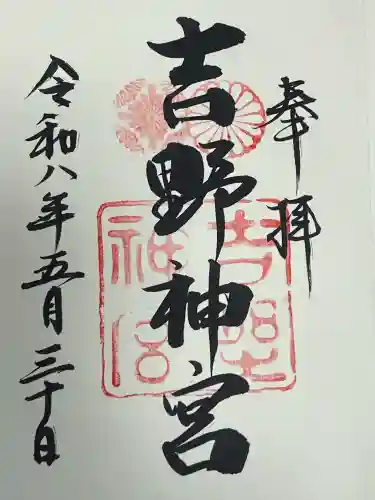 奉拝
吉野神宮
吉野神宮
令和八年五月三十日